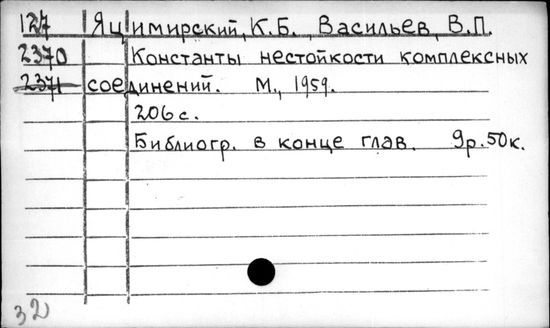 127 Яцимирский, К.Б., Васильев, В.П.
2370 Константы нестойкости комплексных
2371 соединений. М., 1959.
206 с.
Библиогр. в конце глав. 9р.50к.
32